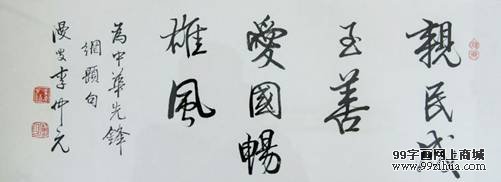 親民成
至善
愛國暢
雄風
為中華先鋒
網題句
漫叟李仲元
99字画网上商城
www.99zihua.com